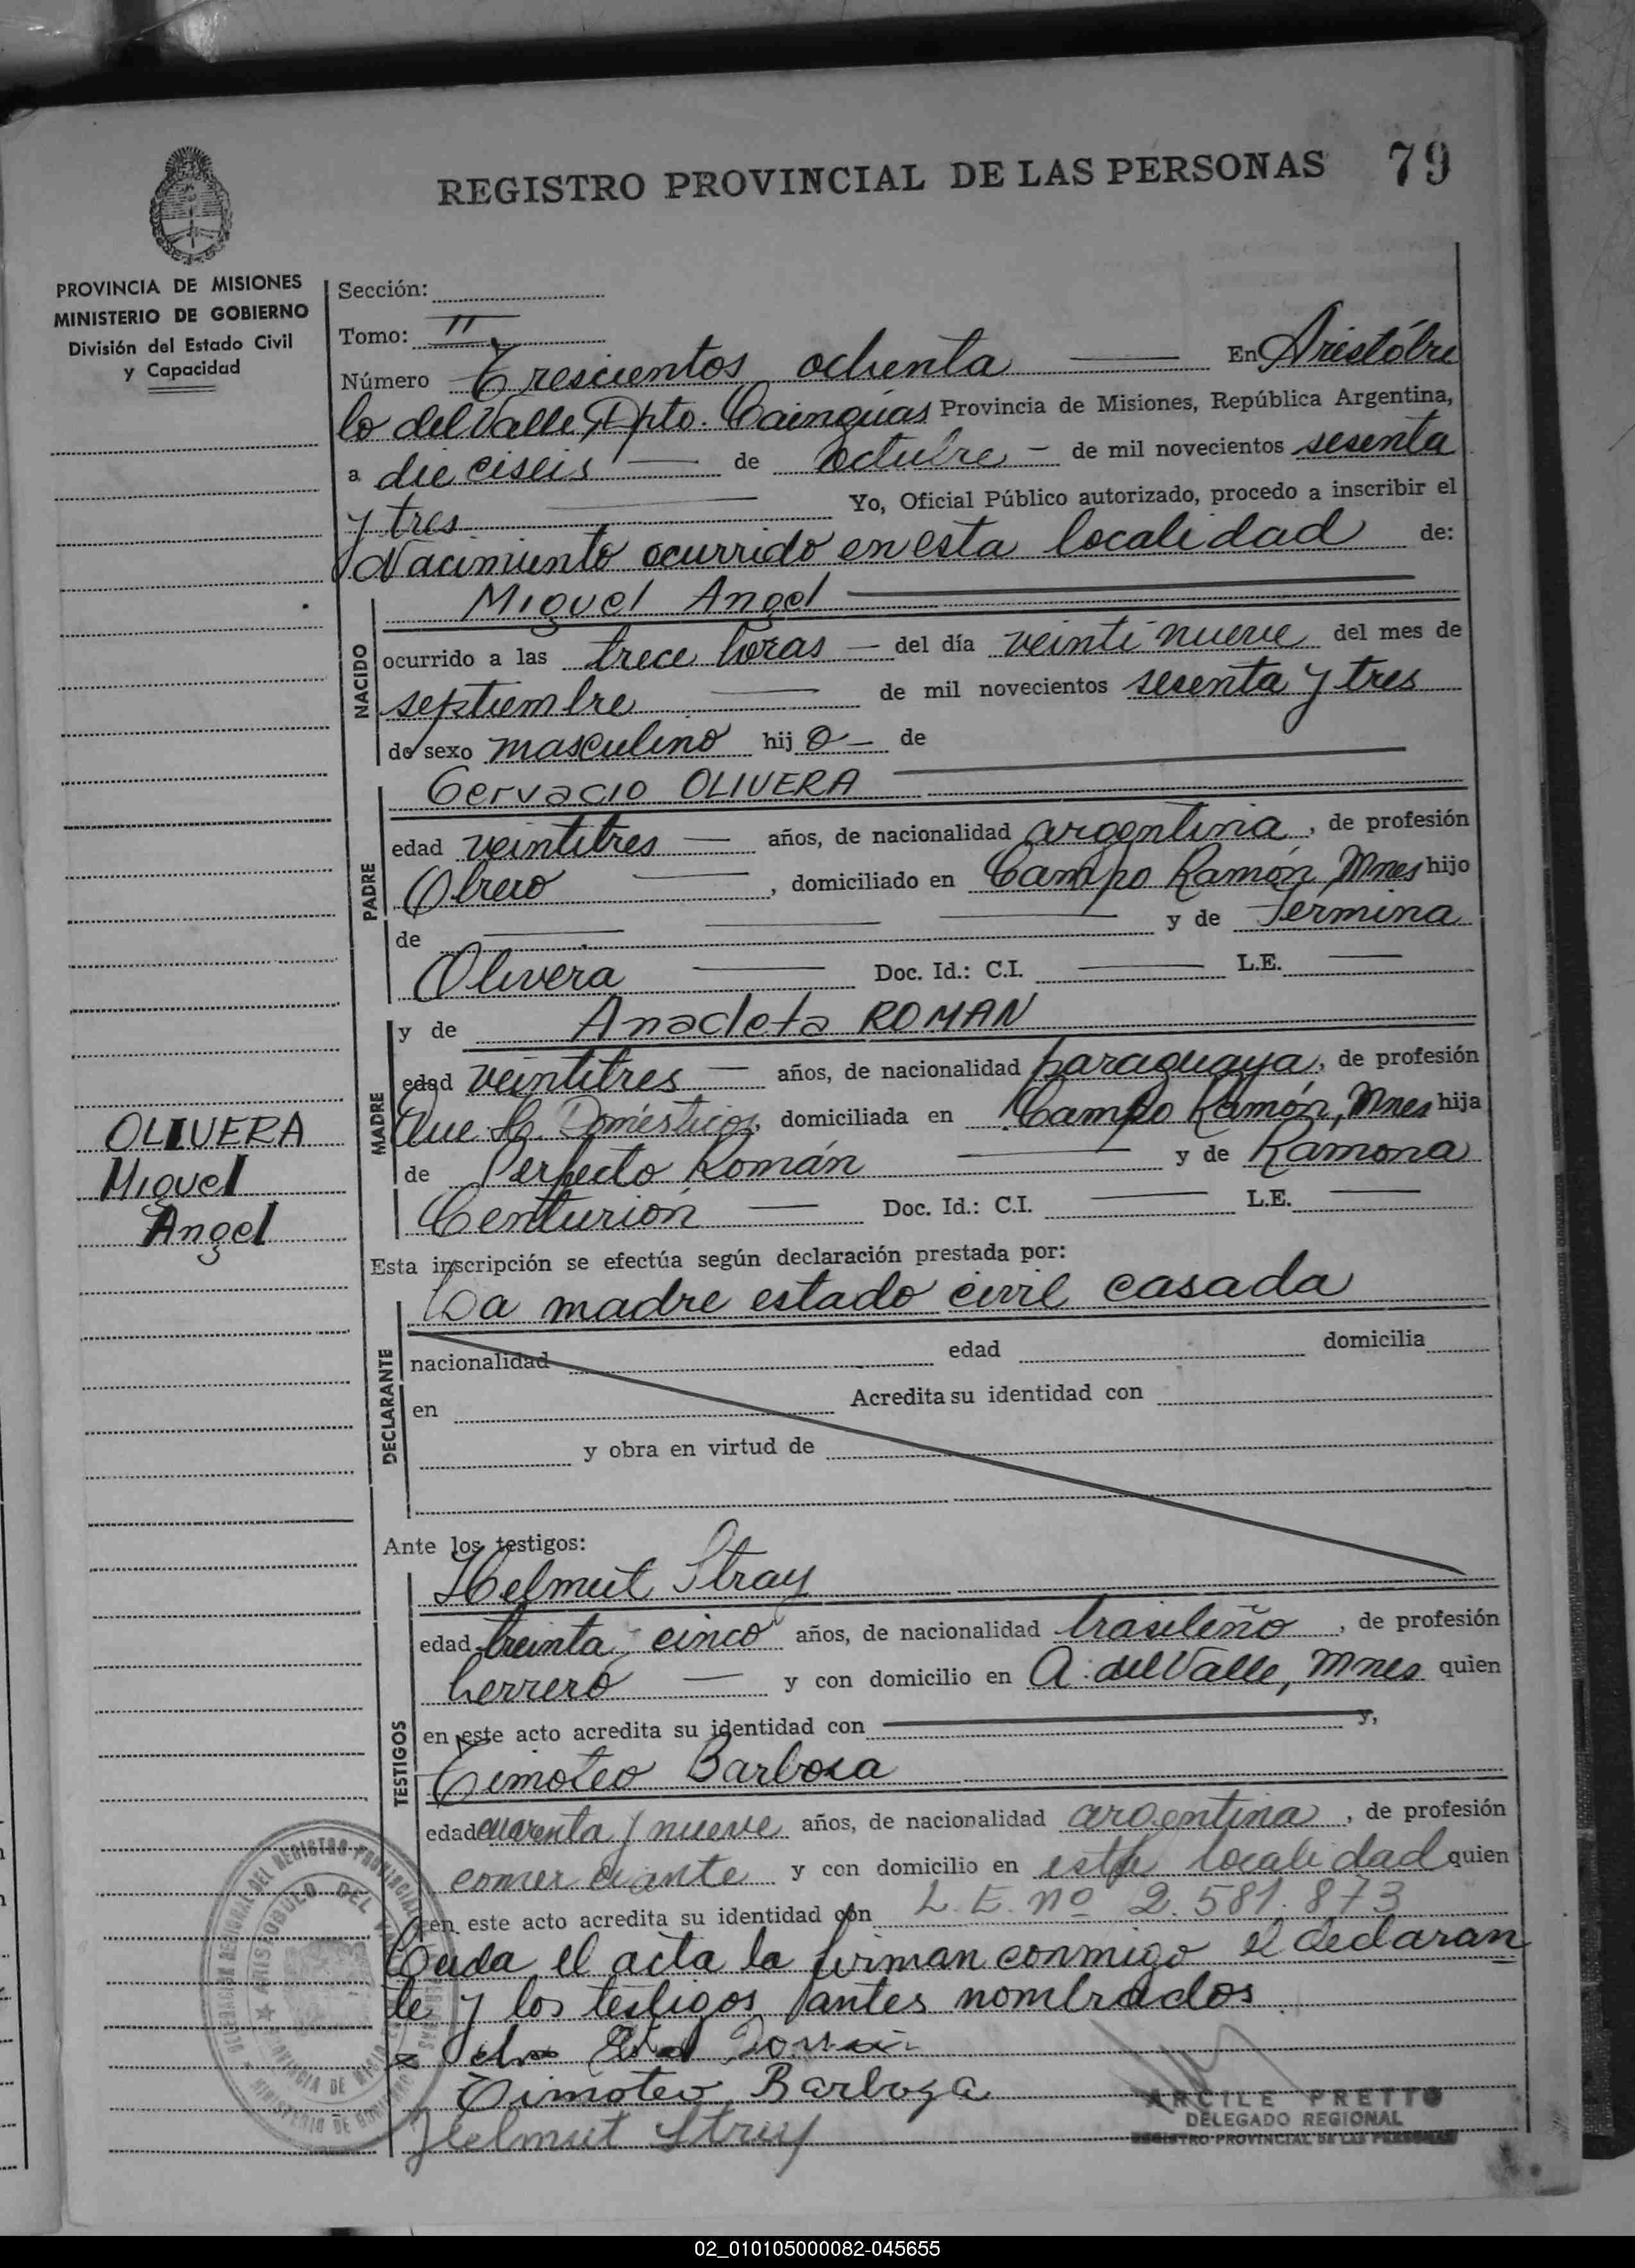 REGISTRO PROVINCIAL DE LAS PERSONAS 79
PROVINCIA DE MISIONES
MINISTERIO DE GOBIERNO
División del Estado Civil
y Capacidad
Sección:
Tomo: II
Número Trescientos ochenta En Aristóbu
lo del Valle, Dpto. Cainguas Provincia de Misiones, República Argentina,
a dieciseis de octubre de mil novecientos sesenta
y tres Yo, Oficial Público autorizado, procedo a inscribir el
Nacimiento ocurrido en esta localidad de:
Miguel Angel
NACIDO
ocurrido a las trece horas del día veinti nueve del mes de
septiembre de mil novecientos sesenta y tres
de sexo masculino hijo de
Gervacio OLIVERA
PADRE
edad veintitres años, de nacionalidad argentina, de profesión
Obrero, domiciliado en Campo Ramón, Mnes hijo
de y de Fermina
Olivera Doc. Id.: C.I. L.E.
y de Anacleta ROMAN
MADRE
edad veintitres años, de nacionalidad paraguaya, de profesión
Que H. Domésticos, domiciliada en Campo Ramón, Mnes hija
de Perfecto Román y de Ramona
Centurión Doc. Id.: C.I. L.E.
OLIVERA
Miguel
Angel
Esta inscripción se efectúa según declaración prestada por:
La madre estado civil casada
DECLARANTE
nacionalidad edad domicilia
en Acredita su identidad con
y obra en virtud de
Ante los testigos:
Helmut Stray
TESTIGOS
edad treinta cinco años, de nacionalidad brasileño, de profesión
herrero y con domicilio en A. del Valle, Mnes quien
en este acto acredita su identidad con y,
Timoteo Barbosa
edad cuarenta y nueve años, de nacionalidad argentina, de profesión
comerciante y con domicilio en esta localidad quien
en este acto acredita su identidad con L. E. nº 2.581.873
Leida el acta la firman conmigo el declaran
te y los testigos antes nombrados
Timoteo Barboza
Helmut Stray
ARCILE PRETTO
DELEGADO REGIONAL
REGISTRO PROVINCIAL DE LAS PERSONAS
02_010105000082-045655